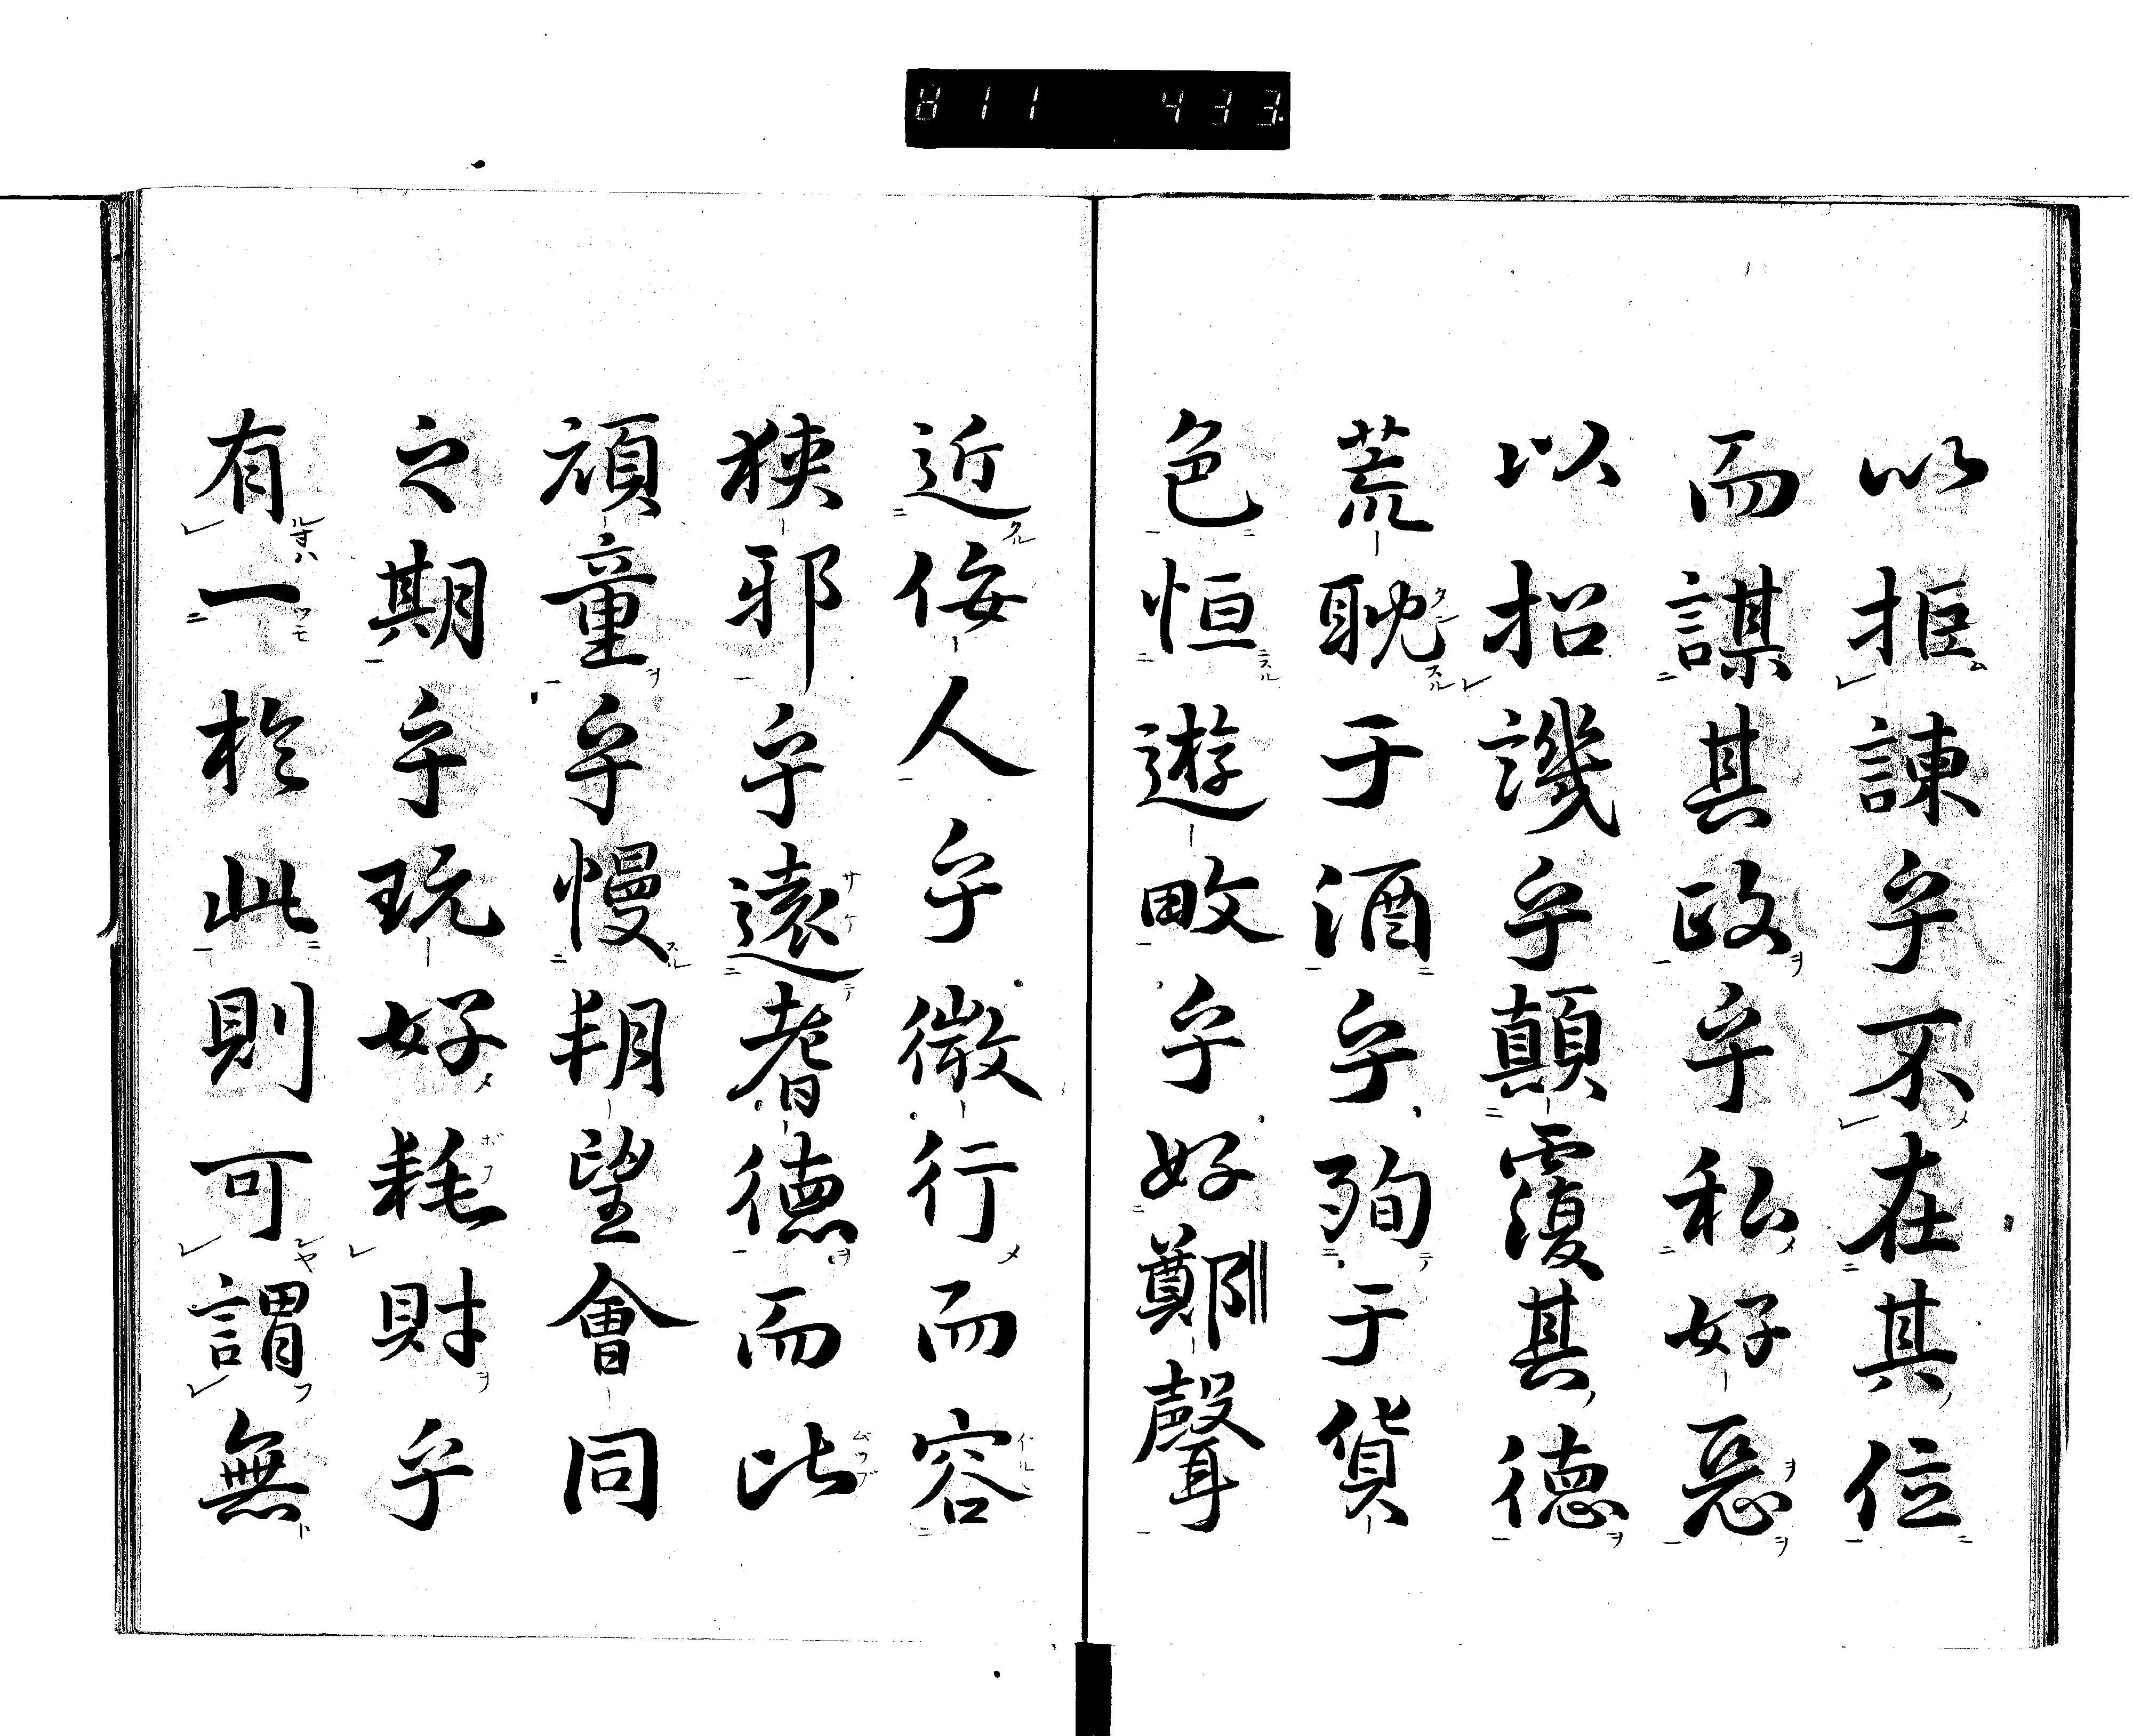 811 433
以拒諫乎不在其位
而謀其政乎私好惡
以招譏乎顛覆其徳
荒耽于酒乎殉于貨
色恒遊畋乎好鄭聲
近佞人乎微行而容
狹邪乎遠耆徳而比
頑童乎慢朔望會同
之期乎玩好耗財乎
有一於此則可謂無